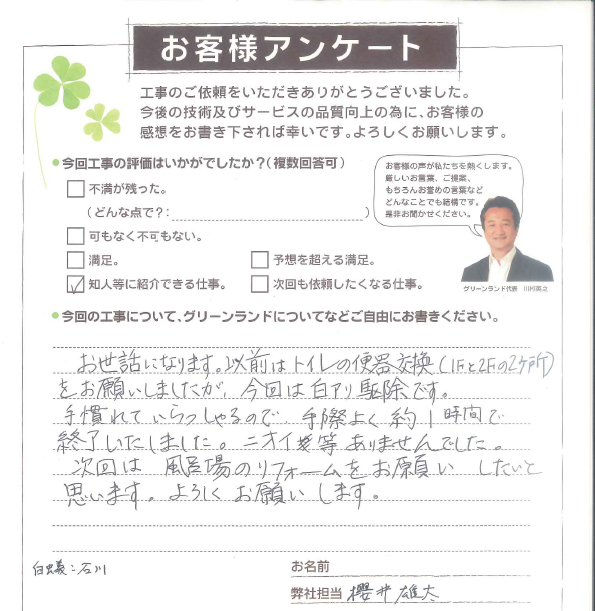 お客様アンケート
工事のご依頼をいただきありがとうございました。
今後の技術及びサービスの品質向上の為に、お客様の
感想をお書き下されば幸いです。よろしくお願いします。
●今回工事の評価はいかがでしたか？(複数回答可)
不満が残った。
(どんな点で?: )
可もなく不可もない。
満足。
予想を超える満足。
知人等に紹介できる仕事。
次回も依頼したくなる仕事。
お客様の声が私たちを熱くします。
厳しいお言葉、ご提案、
もちろんお誉めの言葉など
どんなことでも結構です。
是非お聞かせください。
グリーンランド代表 川村英之
●今回の工事について、グリーンランドについてなどご自由にお書きください。
お世話になります。以前はトイレの便器交換(1Fと2Fの2ケ所)
をお願いしましたが、今回は白アリ駆除です。
手慣れていらっしゃるので 手際よく約1時間で
終了いたしました。ニオイ等ありませんでした。
次回は 風呂場のリフォームをお願い したいと
思います。よろしくお願いします。
白蟻:石川
お名前
弊社担当 櫻井雄太